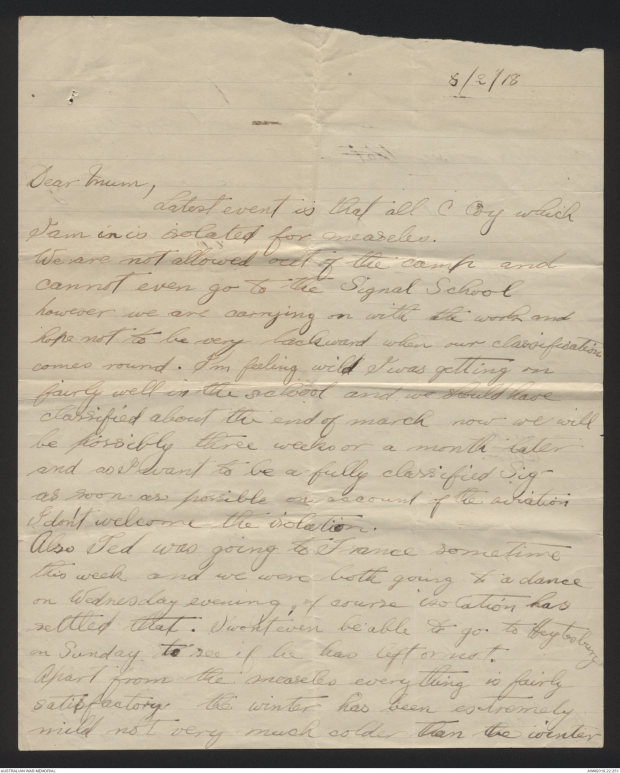 8/2/18
Dear Mum,
Latest event is that all C Coy which
I am in is isolated for measeles.
We are not allowed out of the camp and
cannot even go to the Signal School
however we are carrying on with the work and
hope not to be very backward when our classification
comes round. I'm feeling wild I was getting on
fairly well in the school and we should have
classified about the end of march now we will
be possibly three weeks or a month later
and as I want to be a fully classified Sig
as soon as possible on account of the aviation
I don't welcome the isolation.
Also Ted was going to France sometime
this week and we were both going to a dance
on Wednesday evening, of course isolation has
settled that. I wont even be able to go to Heytesbury
on Sunday to see if he has left or not.
Apart from the measeles everything is fairly
satisfactory the winter has been extremely
mild not very much colder than the winter
AUSTRALIAN WAR MEMORIAL